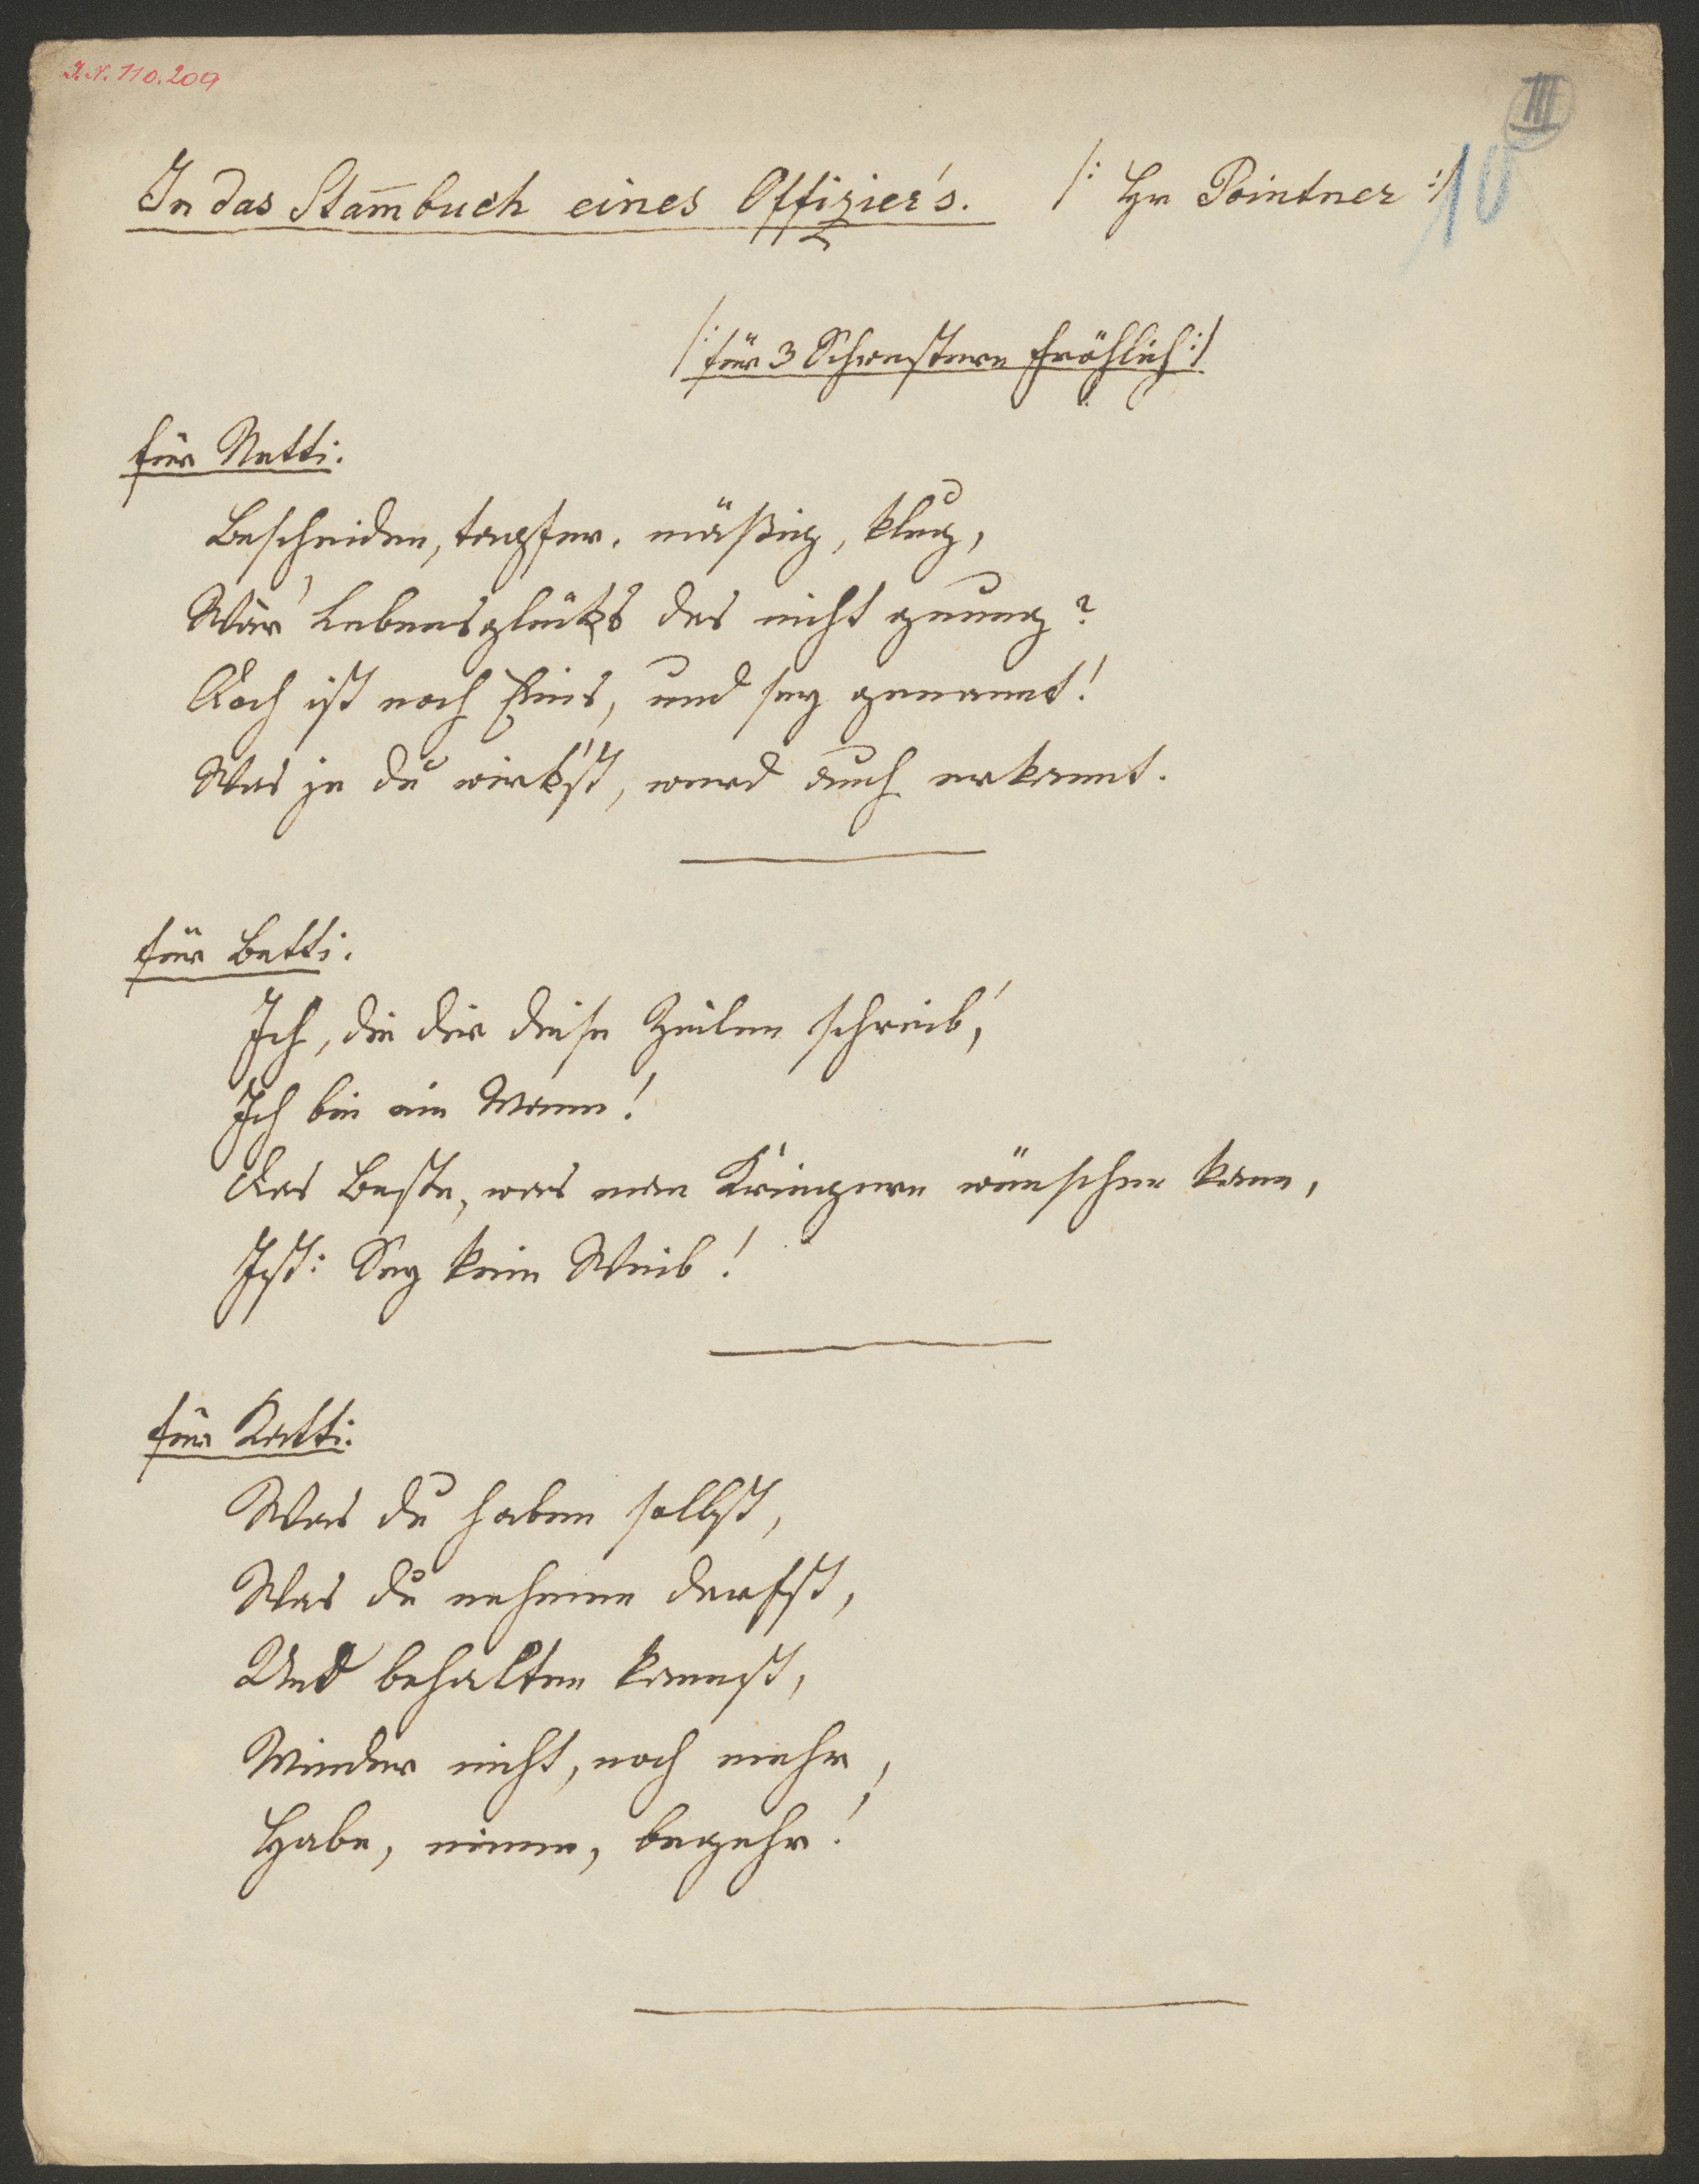 I.N. 110.209
III
10
In das Stam̄buch eines Offizier's. /: Hr Pointner :/
/: für 3 Schwestern Fröhlich :/
für Netti.
Bescheiden, tapfer, mäßig, klug,
Wär' Lebensglücks das nicht genug?
Doch ist noch Eins, und sey genannt!
Was je du wirk'st, werd auch erkannt.
für Betti.
Ich, die dir diese Zeilen schreib',
Ich bin ein Mann!
Das Beste, was man Kriegern wünschen kann,
Ist: Sey kein Weib!
für Katti.
Was du haben sollst,
Was du nehmen darfst,
Und behalten kannst,
Minder nicht, noch mehr,
Habe, nimm, begehr!